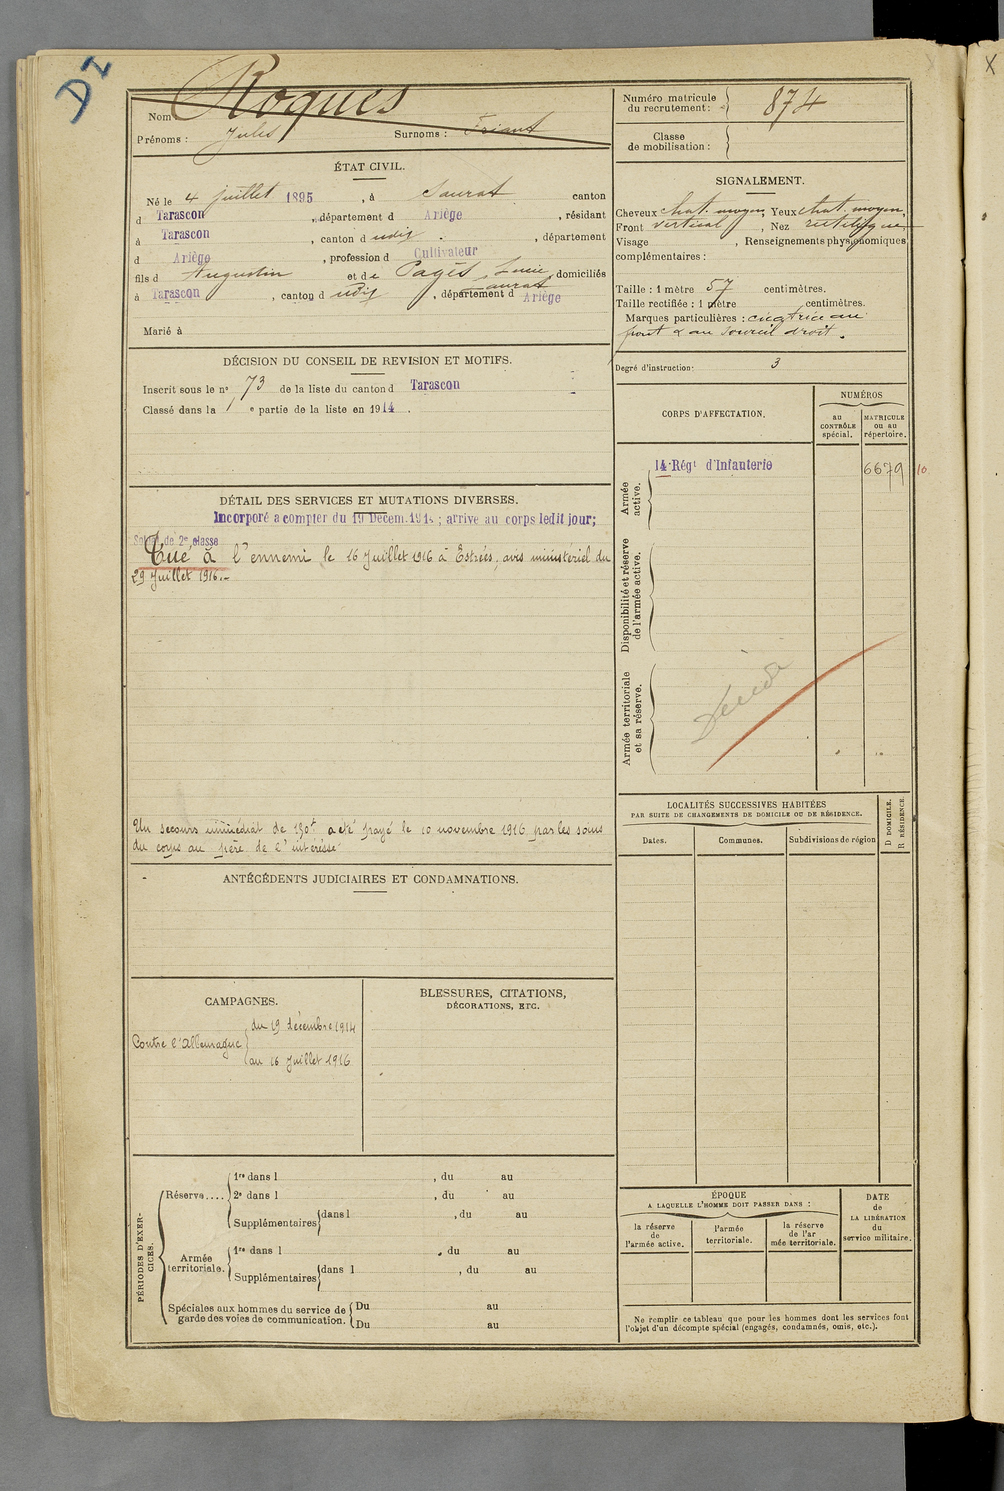 DZ
X
Roques
Nom
Prénoms : Jules Surnoms : Friant
ÉTAT CIVIL.
Né le 4 juillet 1895, à Saurat canton
d Tarascon, département d Ariège, résidant
à Tarascon, canton d udit, département
d Ariège, profession d Cultivateur
fils d Augustin et de Pagès, Lucie, domiciliés
à Tarascon, canton d udit, département d Ariège
Saurat
Marié à
DÉCISION DU CONSEIL DE REVISION ET MOTIFS.
Inscrit sous le nº 73 de la liste du canton d Tarascon
Classé dans la 1 e partie de la liste en 1914.
DÉTAIL DES SERVICES ET MUTATIONS DIVERSES.
Incorporé a compter du 19 Décem. 191 ; arrive au corps ledit jour;
Soldat de 2e classe
Tué à l'ennemi le 16 Juillet 1916 à Estrées, avis ministériel du
29 Juillet 1916.-
Un secours immédiat de 150f a été payé le 10 novembre 1916 par les soins
du corps au père de l'intéressé
ANTÉCÉDENTS JUDICIAIRES ET CONDAMNATIONS.
CAMPAGNES.
Contre l'Allemagne
du 19 décembre 1914
au 16 Juillet 1916
BLESSURES, CITATIONS,
DÉCORATIONS, ETC.
PÉRIODES D'EXER-
CICES.
Réserve....
1re dans l , du au
2e dans l , du au
Supplémentaires dans l , du au
Armée
territoriale.
1re dans l , du au
Supplémentaires dans l , du au
Spéciales aux hommes du service de
garde des voies de communication.
Du au
Du au
Numéro matricule
du recrutement : 874
Classe
de mobilisation :
SIGNALEMENT.
Cheveux chat. moyen, Yeux chat. moyen,
Front vertical, Nez rectiligne,
Visage , Renseignements physionomiques
complémentaires :
Taille : 1 mètre 57 centimètres.
Taille rectifiée : 1 mètre centimètres.
Marques particulières : cicatrice au
front & au sourcil droit.
Degré d'instruction: 3
CORPS D'AFFECTATION.
NUMÉROS
au
CONTRÔLE
spécial.
MATRICULE
ou au
répertoire.
Armée
active.
14e Régt d'Infanterie 6679 10
Disponibilité et réserve
de l'armée active.
Armée territoriale
et sa réserve.
Décédé
LOCALITÉS SUCCESSIVES HABITÉES
PAR SUITE DE CHANGEMENTS DE DOMICILE OU DE RÉSIDENCE.
D DOMICILE.
R RÉSIDENCE.
Dates. Communes. Subdivisions de région
ÉPOQUE
A LAQUELLE L'HOMME DOIT PASSER DANS :
la réserve
de
l'armée active.
l'armée
territoriale.
la réserve
de l'ar
mée territoriale.
DATE
de
LA LIBÉRATION
du
service militaire.
Ne remplir ce tableau que pour les hommes dont les services font
l'objet d'un décompte spécial (engagés, condamnés, omis, etc.).